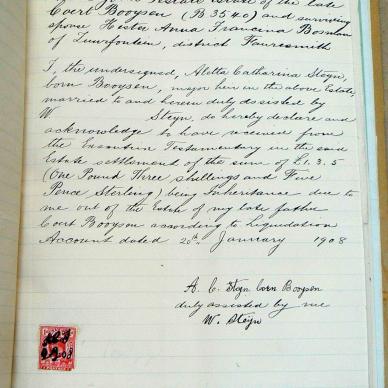 Estate of the late
Coert Booysen (B 3540) and surviving
spouse Hester Anna Francina Bosman
of Zuurfontein, district Fauresmith
I, the undersigned, Aletta Catharina Steyn,
born Booysen, major heir in the above Estate,
married to and herein duly assisted by
W. Steyn, do hereby declare and
acknowledge to have received from
the Executrix Testamentary in the said
Estate settlement of the sum of £1.3.5
(One Pound Three shillings and Five
Pence Sterling) being Inheritance due to
me out of the Estate of my late father
Coert Booysen according to Liquidation
Account dated 20th January 1908
A. C. Steyn born Booysen
duly assisted by me
W. Steyn